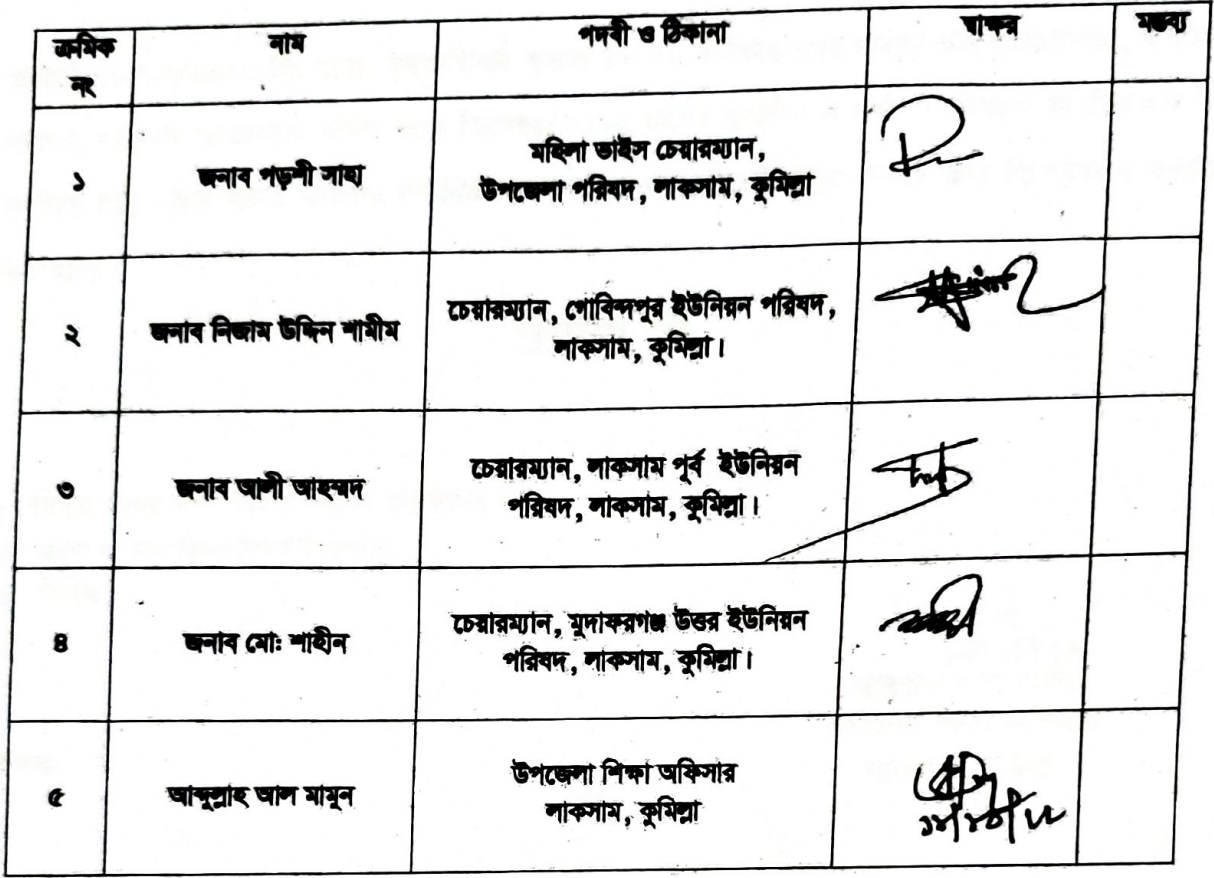 ক্রমিক নং নাম পদবী ও ঠিকানা স্বাক্ষর মন্তব্য
১ জনাব পড়শী সাহা মহিলা ভাইস চেয়ারম্যান,
উপজেলা পরিষদ, লাকসাম, কুমিল্লা
২ জনাব নিজাম উদ্দিন শামীম চেয়ারম্যান, গোবিন্দপুর ইউনিয়ন পরিষদ,
লাকসাম, কুমিল্লা।
৩ জনাব আলী আহম্মদ চেয়ারম্যান, লাকসাম পূর্ব ইউনিয়ন
পরিষদ, লাকসাম, কুমিল্লা।
৪ জনাব মোঃ শাহীন চেয়ারম্যান, মুদাফরগঞ্জ উত্তর ইউনিয়ন
পরিষদ, লাকসাম, কুমিল্লা।
৫ আব্দুল্লাহ আল মামুন উপজেলা শিক্ষা অফিসার
লাকসাম, কুমিল্লা